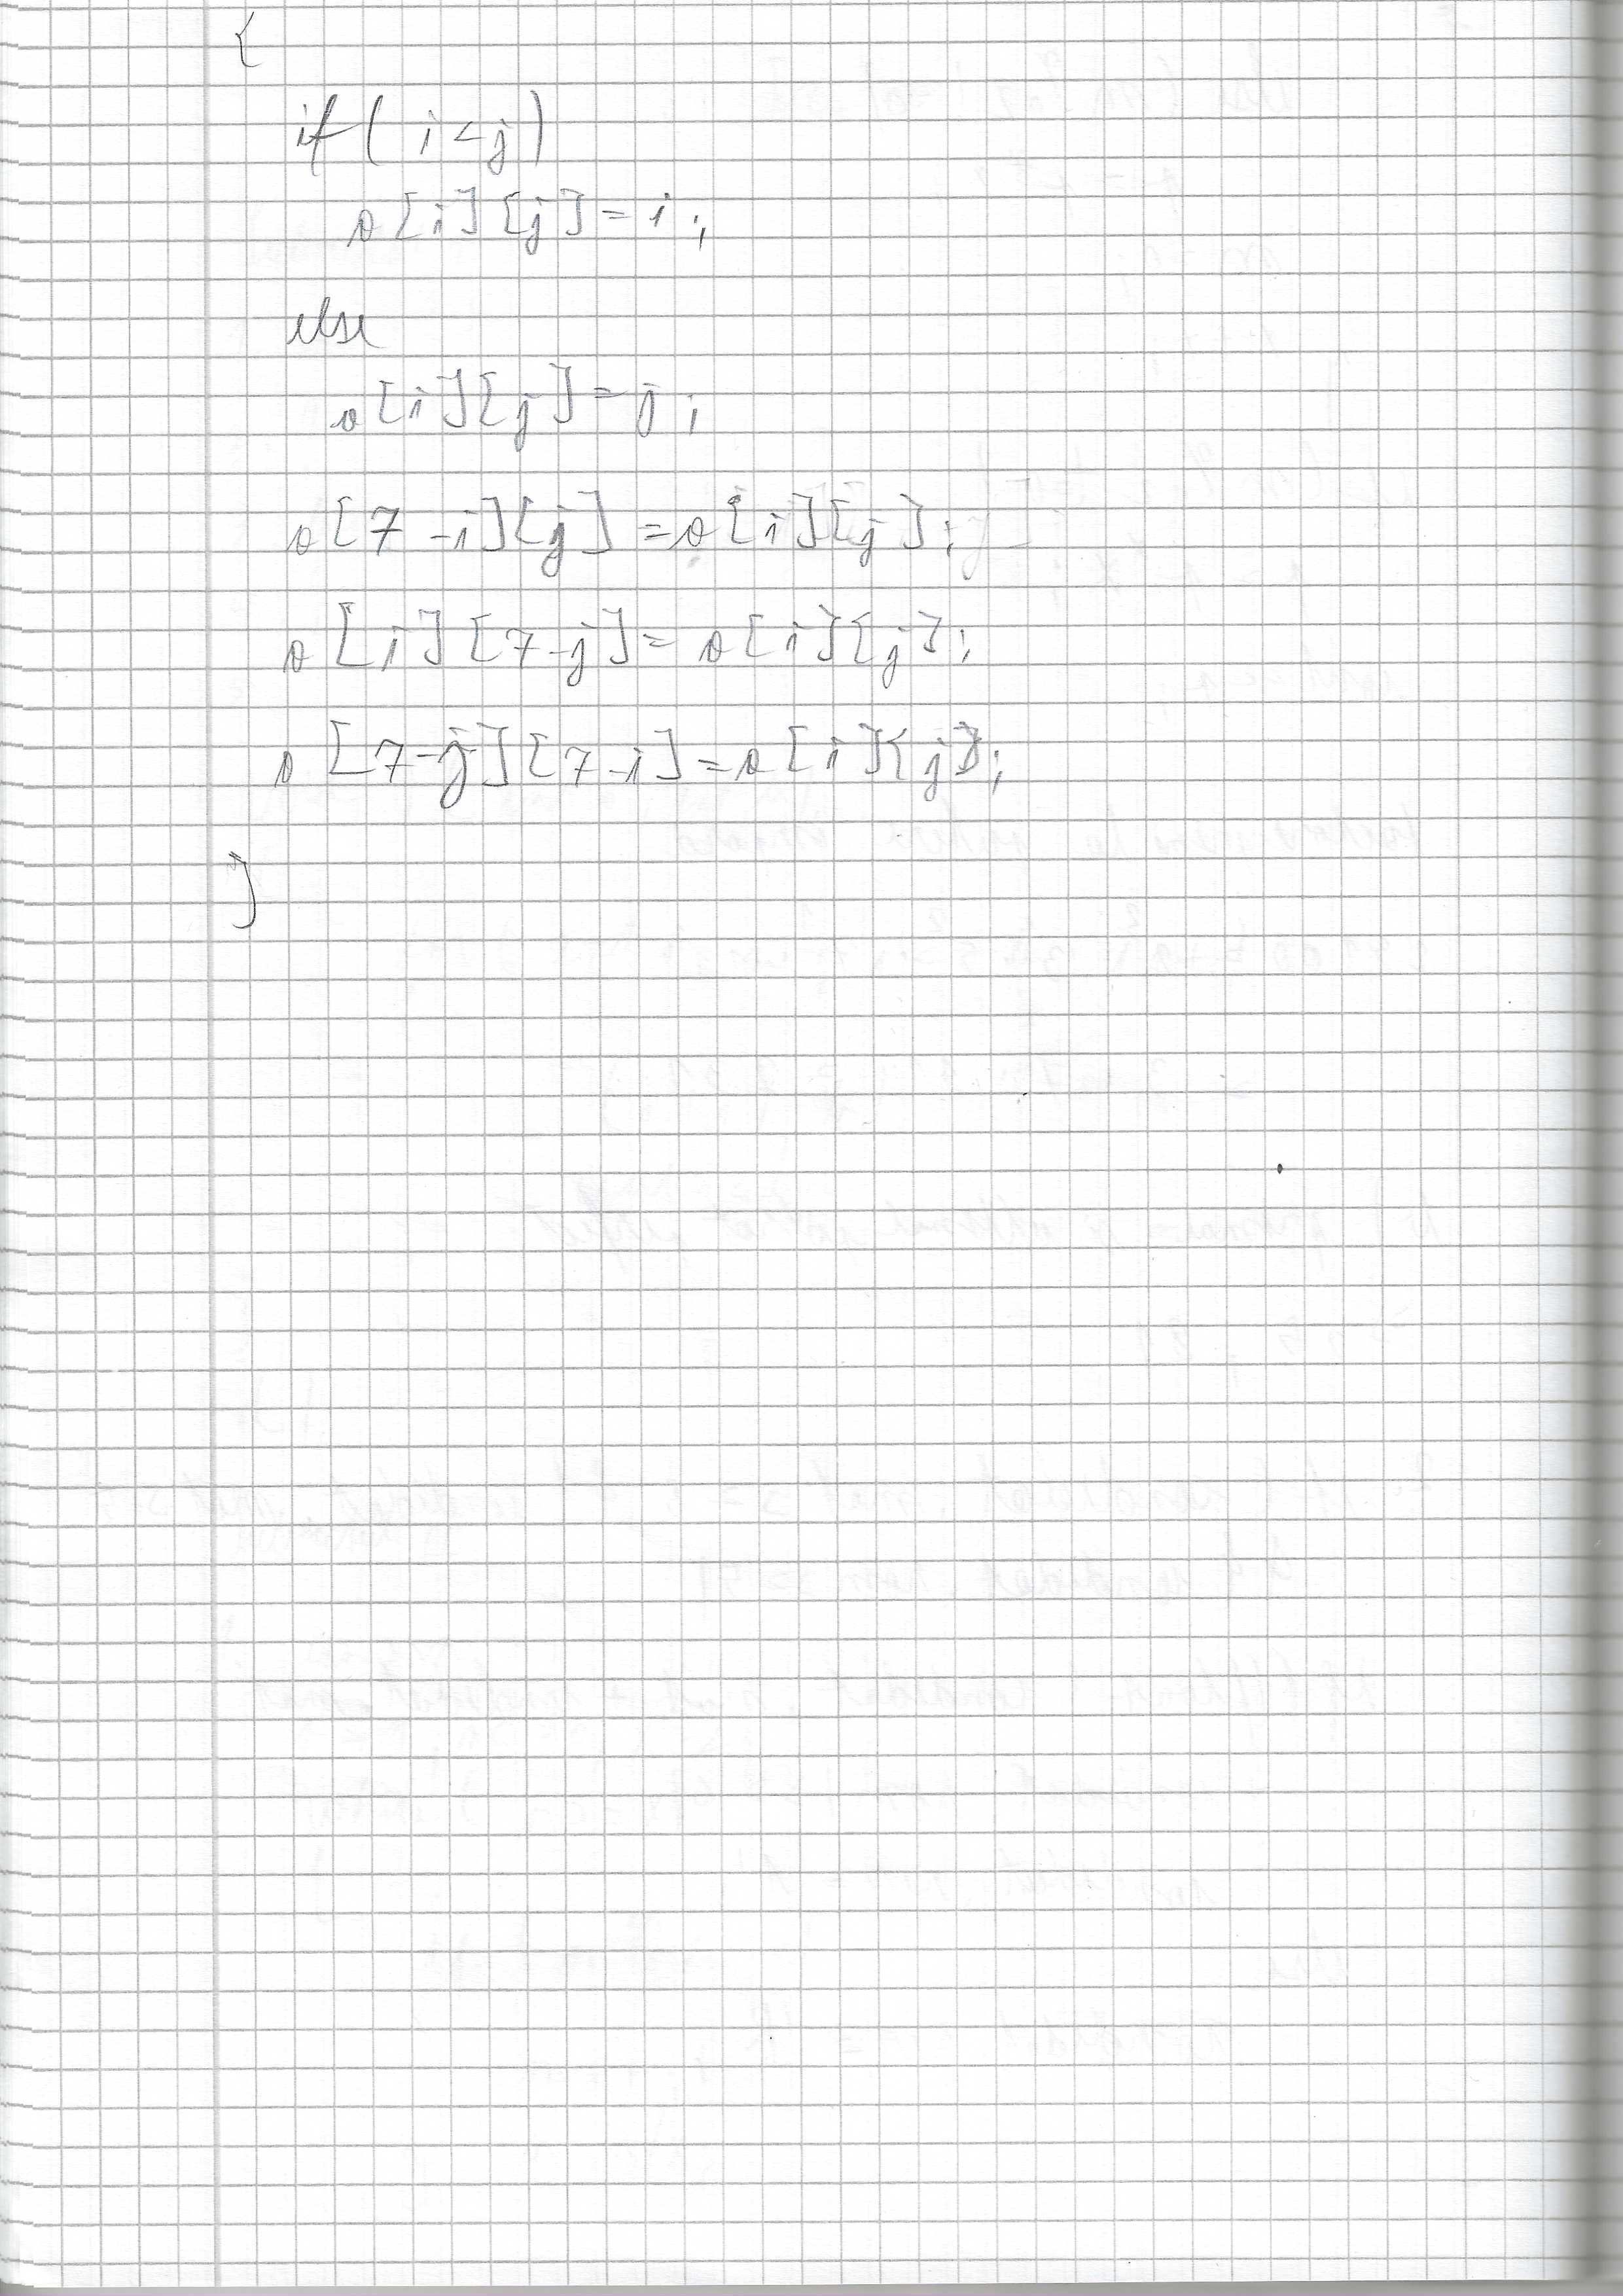 {
if ( i < j )
a[i][j] = i ;
else
a[i][j] = j ;
a[7-i][j] = a[i][j] ;
a[i][7-j] = a[i][j] ;
a[7-j][7-i] = a[i][j] ;
}